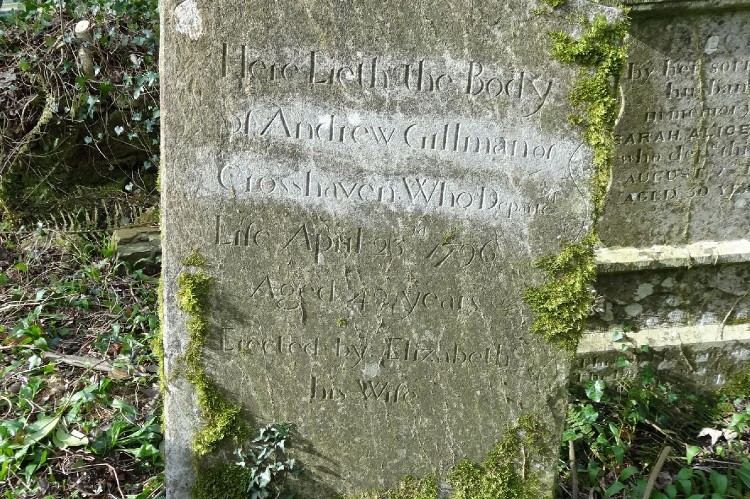 Here Lieth the Body
of Andrew Gillman of
Crosshaven Who Departed
Life April 23rd 1796
Aged 42 years
Erected by Elizabeth
his Wife
by her
husban
in memory
SARAH ALICE
who dep this
AUGUST
AGED 30